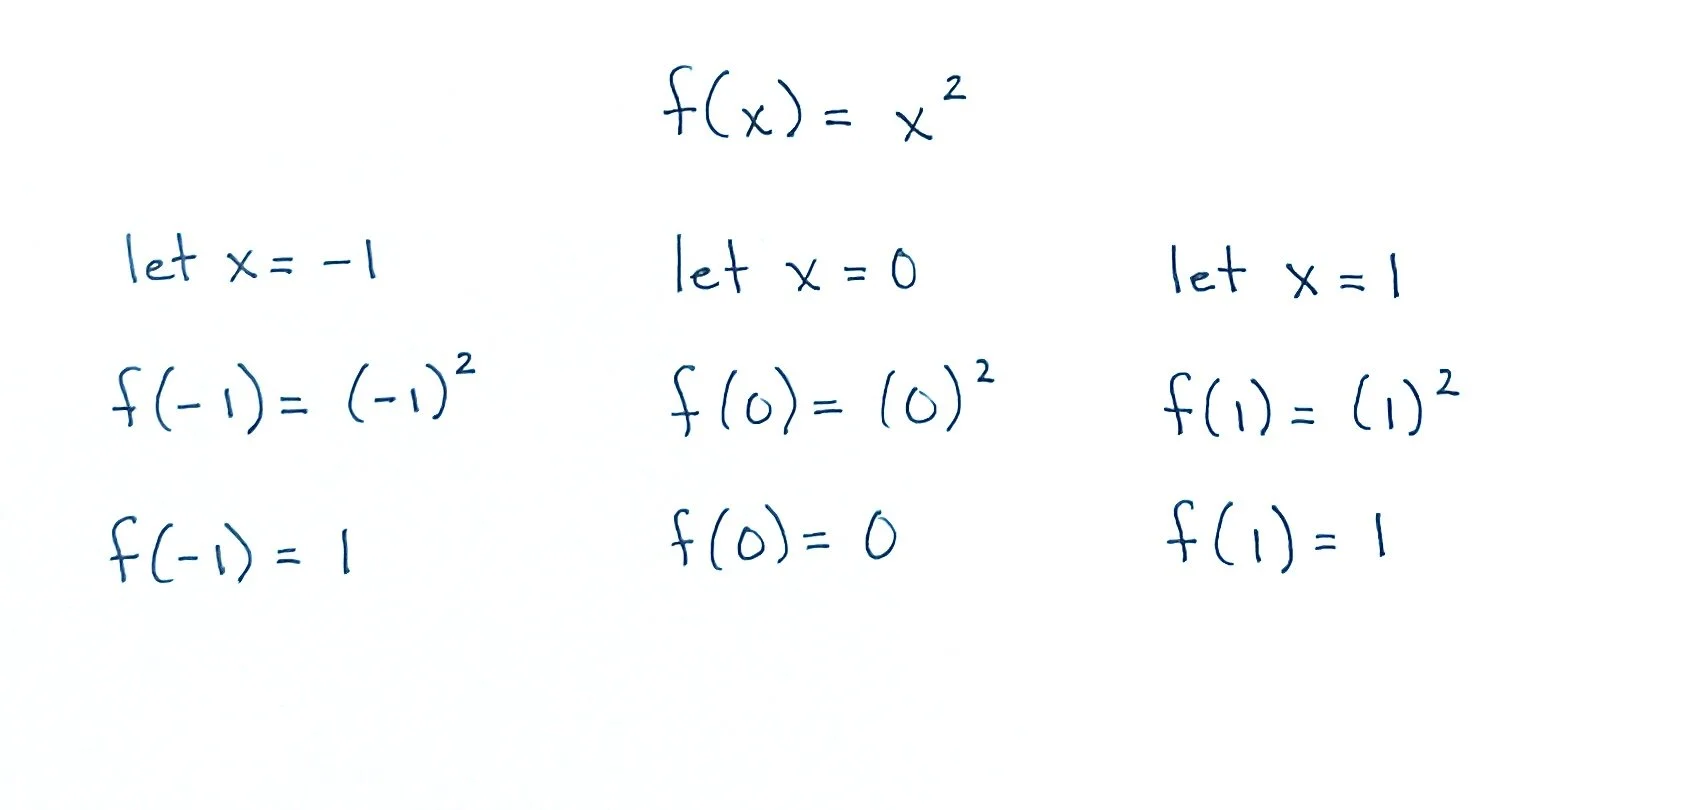 f(x) = x²
let x = -1
f(-1) = (-1)²
f(-1) = 1
let x = 0
f(0) = (0)²
f(0) = 0
let x = 1
f(1) = (1)²
f(1) = 1